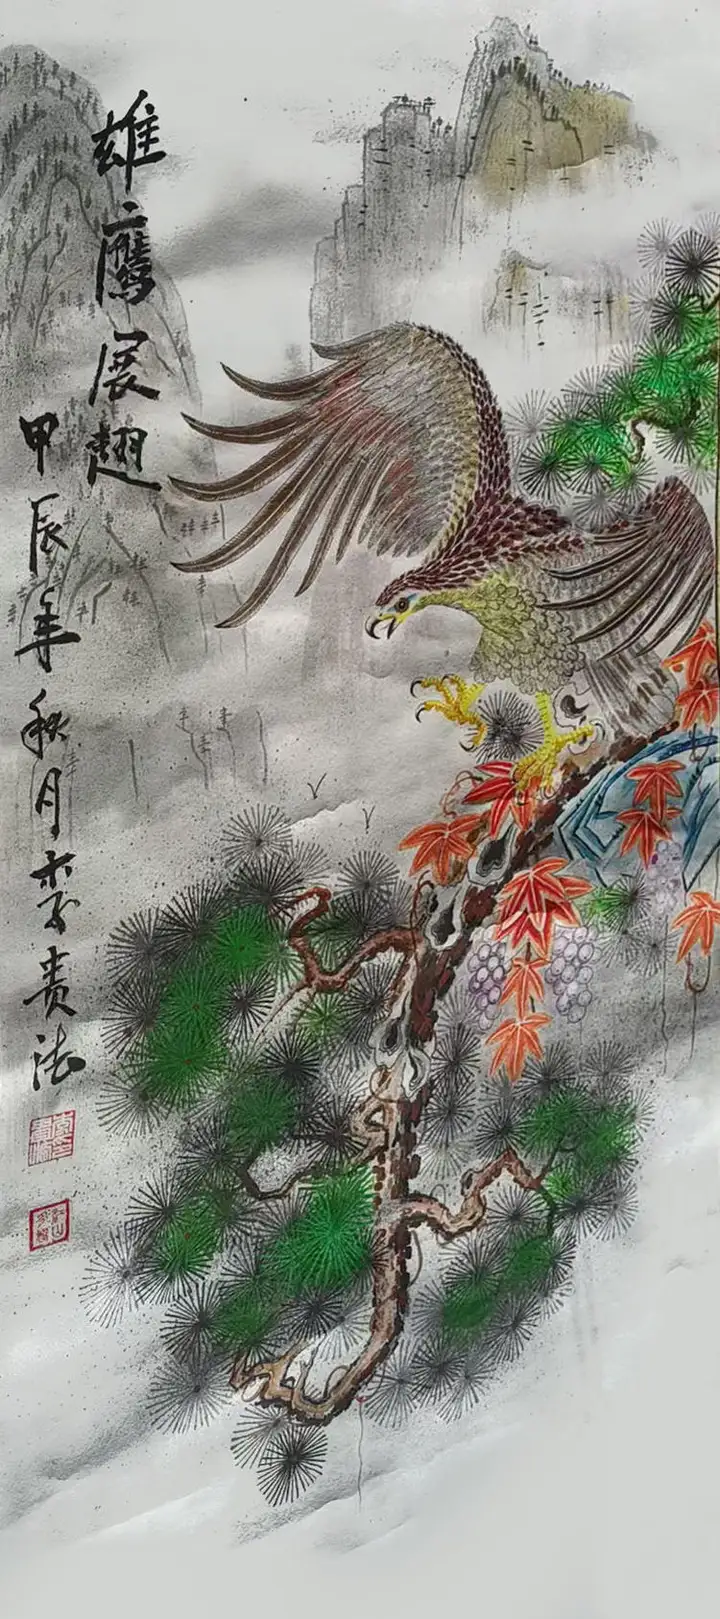 雄鹰展翅
甲辰年秋月李贵法